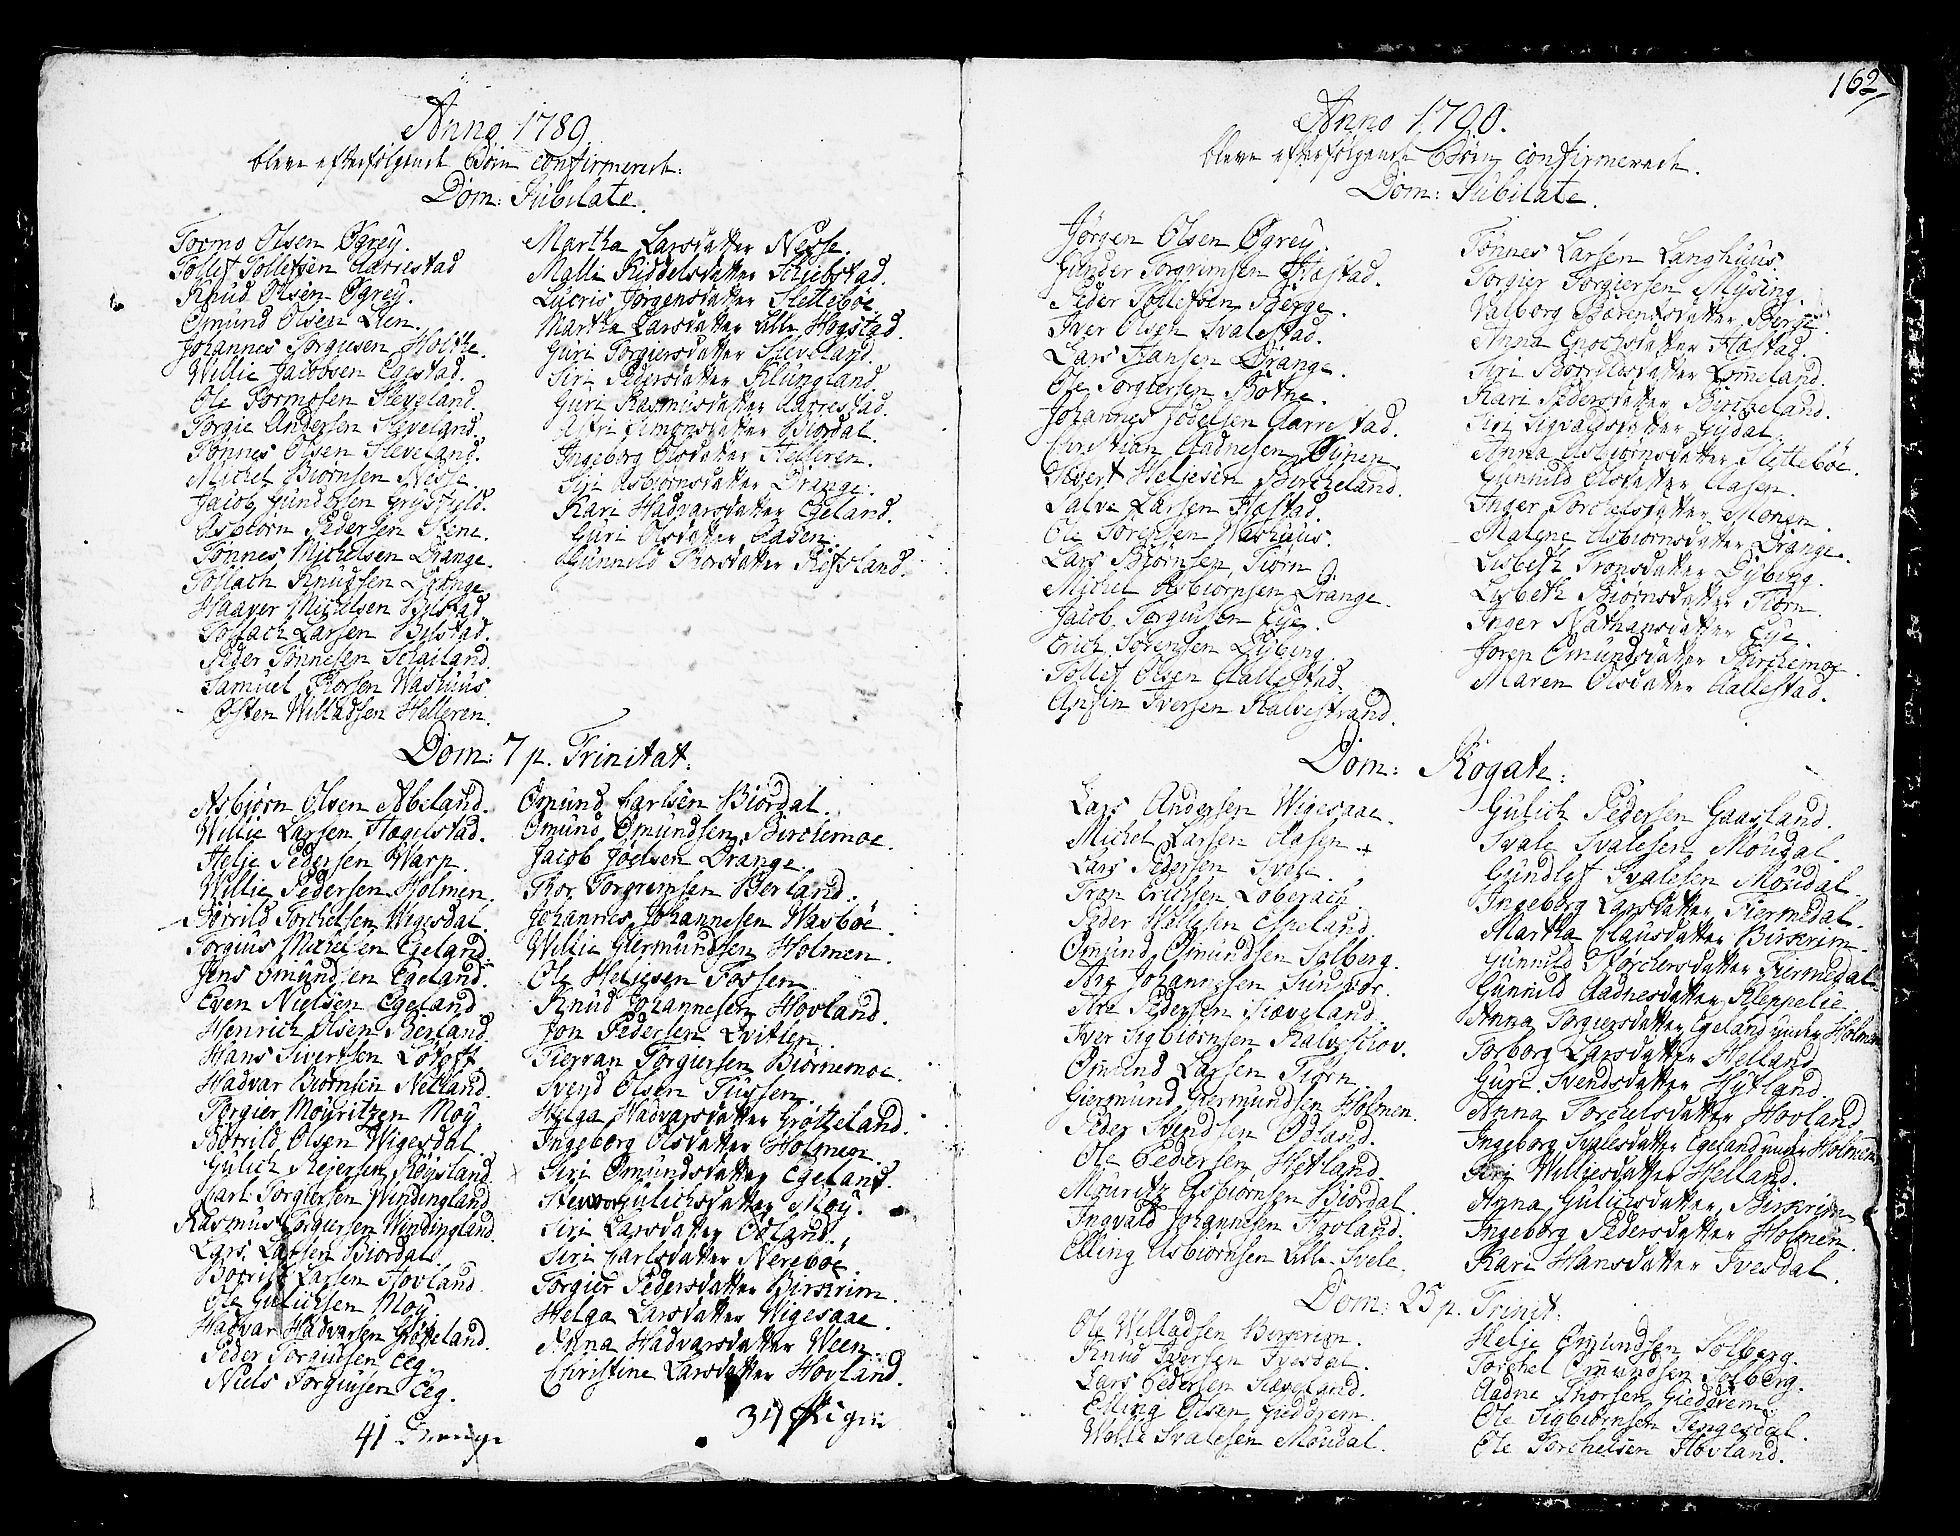 Anno 1789
bleve efterfølgende Børn confirmerede:
Dom: Jubilate.
Tormo Olsen Øgrey.
Tollef Tollefsen Aarrestad
Knud Olsen Øgrey.
Omund Olsen Lien.
Johannes Torgiusen
Willie Jacobsen Egestad.
Ole Tormosen Sleveland.
Torgie Andersen Sleveland.
Tønnes Olsen Sleveland.
Michel Biørnsen Nesse.
Jacob Gundersen
Asbiørn Pedersen Stene.
Tønnes Michelsen Drange.
Tollach Knudsen Drange
Haaver Michelsen Bilstad
Tollach Larsen Bilstad.
Peder Tønnesen Schailand.
Samuel Thorsen Washuus.
Østen Willadsen Helleren.
Martha Larsdatter Nesse.
Malle Kiddelsdatter Schebstad.
Lucris Jørgensdatter Slettebøe
Martha Larsdatter Lille Hogstad.
Guri Torgiersdatter Sleveland.
Siri Pedersdatter Klungland.
Guri Rasmusdatter Aarrestad.
Simonsdatter Biordal.
Ingeborg Olsdatter Helleren.
Siri Asbiornsdatter Drange.
Kari Hadvarsdatter Egeland.
Guri Olsdatter Aasen.
Gunnild Thorsdatter Røfsland.
Dom: 7 p. Trinitat:
Asbjørn Olsen Abeland.
Willie Larsen Hægelstad.
Helje Pedersen Warp.
Willie Pedersen Holmen.
Børrild Torchelsen Wigesdal.
Torgius Michelsen Egeland.
Jens Omundsen Egeland.
Even Nielsen Egeland
Henrich Olsen Berland.
Hans Sivertsen Lotoft.
Hadvar Biørnsen Netland.
Torgier Mouritzen Moy
Børrild Olsen Wigesdal.
Gulich Reiersen Røysland.
Carl Torgiersen Windingland
Rasmus Torgiersen Windingland.
Lars Larsen Biordal.
Børrild Larsen Hovland.
Ole Gulichsen Moy.
Hadvar Hadvarsen Grøtteland.
Peder Torgiusen Eeg.
Niels Torgiusen Eeg.
41 Drenge
Omund Carlsen Biordal.
Omund Omundsen Birchemoe.
Jacob Joelsen Drange.
Thor Torgremsen Berland.
Johannes Johannesen Wasbøe.
Willie Giermundsen Holmen.
Ole Heljesen Fossen.
Knud Johannesen Hovland.
Jon Pedersen Qvitlen.
Tierran Torgiersen Biørnemoe.
Svend Olsen Tussen.
Helga Hadvarsdatter Grøtteland.
Ingeborg Olsdatter Holmen.
Siri Omundsdatter Egeland.
Gulichsdatter Moy.
Siri Larsdatter Ødland.
Siri Carlsdatter Nerebøe.
Torgier Pedersdatter Birkrim.
Helga Larsdatter Wigesaae.
Anna Hadvarsdatter Ween.
Christine Larsdatter Hovland.
Piger
162
Anno 1790.
bleve efterfølgende Børn confirmerede.
Dom: Jubilate.
Jørgen Olsen Øgrey.
Gunder Torgrimsen Hæstad.
Peder Tollefsen Berge.
Iver Olsen Svalestad.
Lars Hansen Drange.
Ole Torgiersen Botne.
Johannes Jodelsen Aarrestad.
Christian Aadnesen
Sivert Heljesen Bircheland.
Salve Larsen Hæstad.
Ole Sørensen Washuus.
Lars Biørnsen Tiørn.
Michel Asbiørnsen Drange.
Jacob Torgiusen Eye.
Erich Sørensen Dybing.
Tollef Olsen Aallestad.
Iversen Kalvestrand.
Tønnes Larsen Langhuus.
Torgier Torgiersen Mysing.
Valborg Berentsdatter Berge.
Anna Enochsdatter Hæstad.
Siri Børrildsdatter Lomeland.
Kari Pedersdatter Bircheland.
Siri Sigvaldsdatter Gydal.
Anna Asbiørnsdatter Slettebøe.
Gunnild Olsdatter Aasen.
Inger Torchelsdatter Monen.
Malene Asbiørnsdatter Drange.
Lisbeth Tronsdatter Dybing.
Lisbeth Biørnsdatter Tiørn.
Inger Nathansdatter Eye.
Joren Omundsdatter Birchemoe.
Maren Olsdatter Aallestad.
Dom: Rogate:
Lars Andersen Wigesaae.
Michel Larsen Aasen.
Lars Pedersen Svele.
Tron Erichsen Loberach.
Peder Espeland.
Omund Omundsen Solberg.
Are Johannesen Sundvor.
Are Pedersen Slæveland.
Iver Sigbiørnsen Kalveskov.
Omund Larsen Tiørn
Giermund Giermundsen Holmen.
Peder Svendsen Ødland.
Ole Pedersen Hetland.
Mouritz Asbiørnsen Biordal.
Ingvald Johannesen Hovland.
Elling Asbiørnsen Lille Svele.
Gulich Pedersen Gaasland.
Svale Svalesen Moudal.
Gundlef Svalesen Moudal.
Ingeborg Larsdatter Tiermedal.
Martha Clausdatter Birkrim.
Gunnild Torchersdatter Tiermedal.
Gunnild Aadnesdatter Kleppelie.
Anna Torgiersdatter Egeland under Holmen
Torborg Larsdatter Helland.
Guri Svendsdatter Hytland.
Anna Torchelsdatter Hovland
Ingeborg Svalesdatter Egeland under Holmen
Siri Williesdatter Helland.
Anna Gulichsdatter Birkrim
Ingeborg Pedersdatter Holmen.
Kari Hansdatter Ivesdal.
Dom: 25 p. Trinit:
Ole Willadsen Birkrim.
Knud Iversen Ivesdal.
Lars Pedersen Slæveland.
Elling Olsen Gieddrem.
Wolle Svalesen Moudal.
Helje Omundsen Solberg.
Torchel Omundsen Solberg.
Aadne Thorsen Gieddrem.
Ole Sigbiørnsen Tengesdal.
Ole Torchelsen Hovland.